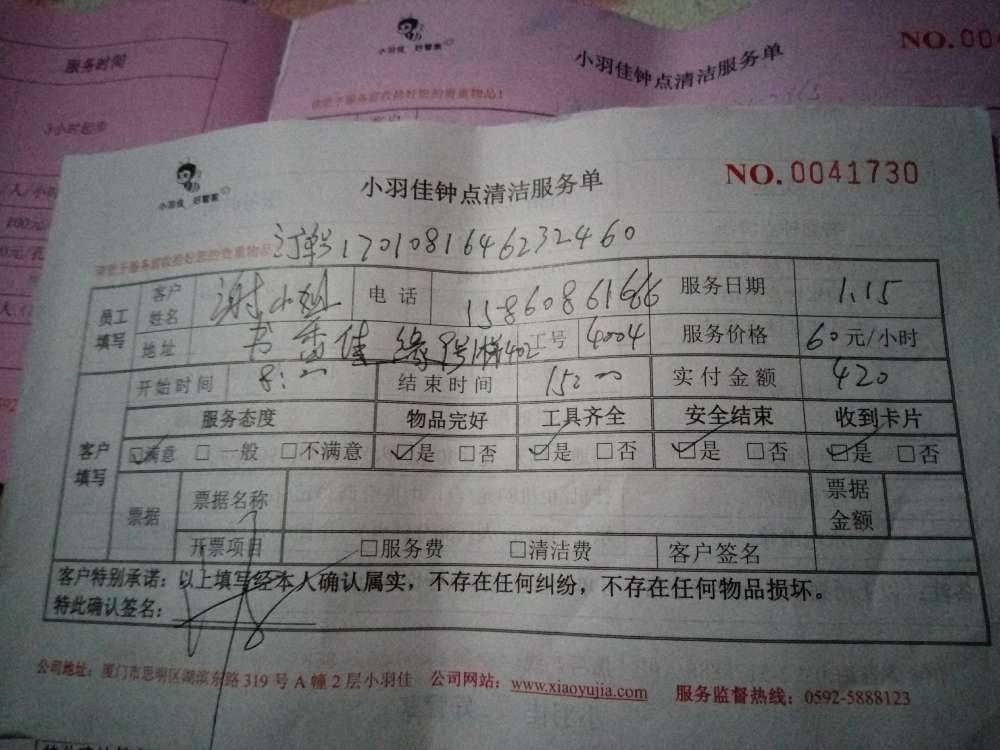 服务时间
3小时起步
小羽佳 好管家
小羽佳钟点清洁服务单
NO.004
小羽佳 好管家
小羽佳钟点清洁服务单
NO.0041730
订单号1701081646232460
员工填写
客户姓名 谢小姐 电话 15860861666 服务日期 1.15
地址 书香佳缘 402 工号 4004 服务价格 60元/小时
客户填写
开始时间 8:00 结束时间 15:00 实付金额 420
服务态度 物品完好 工具齐全 安全结束 收到卡片
☑满意 □一般 □不满意 ☑是 □否 ☑是 □否 ☑是 □否 ☑是 □否
票据 票据名称 票据金额
开票项目 □服务费 □清洁费 客户签名
客户特别承诺：以上填写经本人确认属实，不存在任何纠纷，不存在任何物品损坏。
特此确认签名：
公司地址：厦门市思明区湖滨东路319号A幢2层小羽佳 公司网站：www.xiaoyujia.com 服务监督热线：0592-5888123